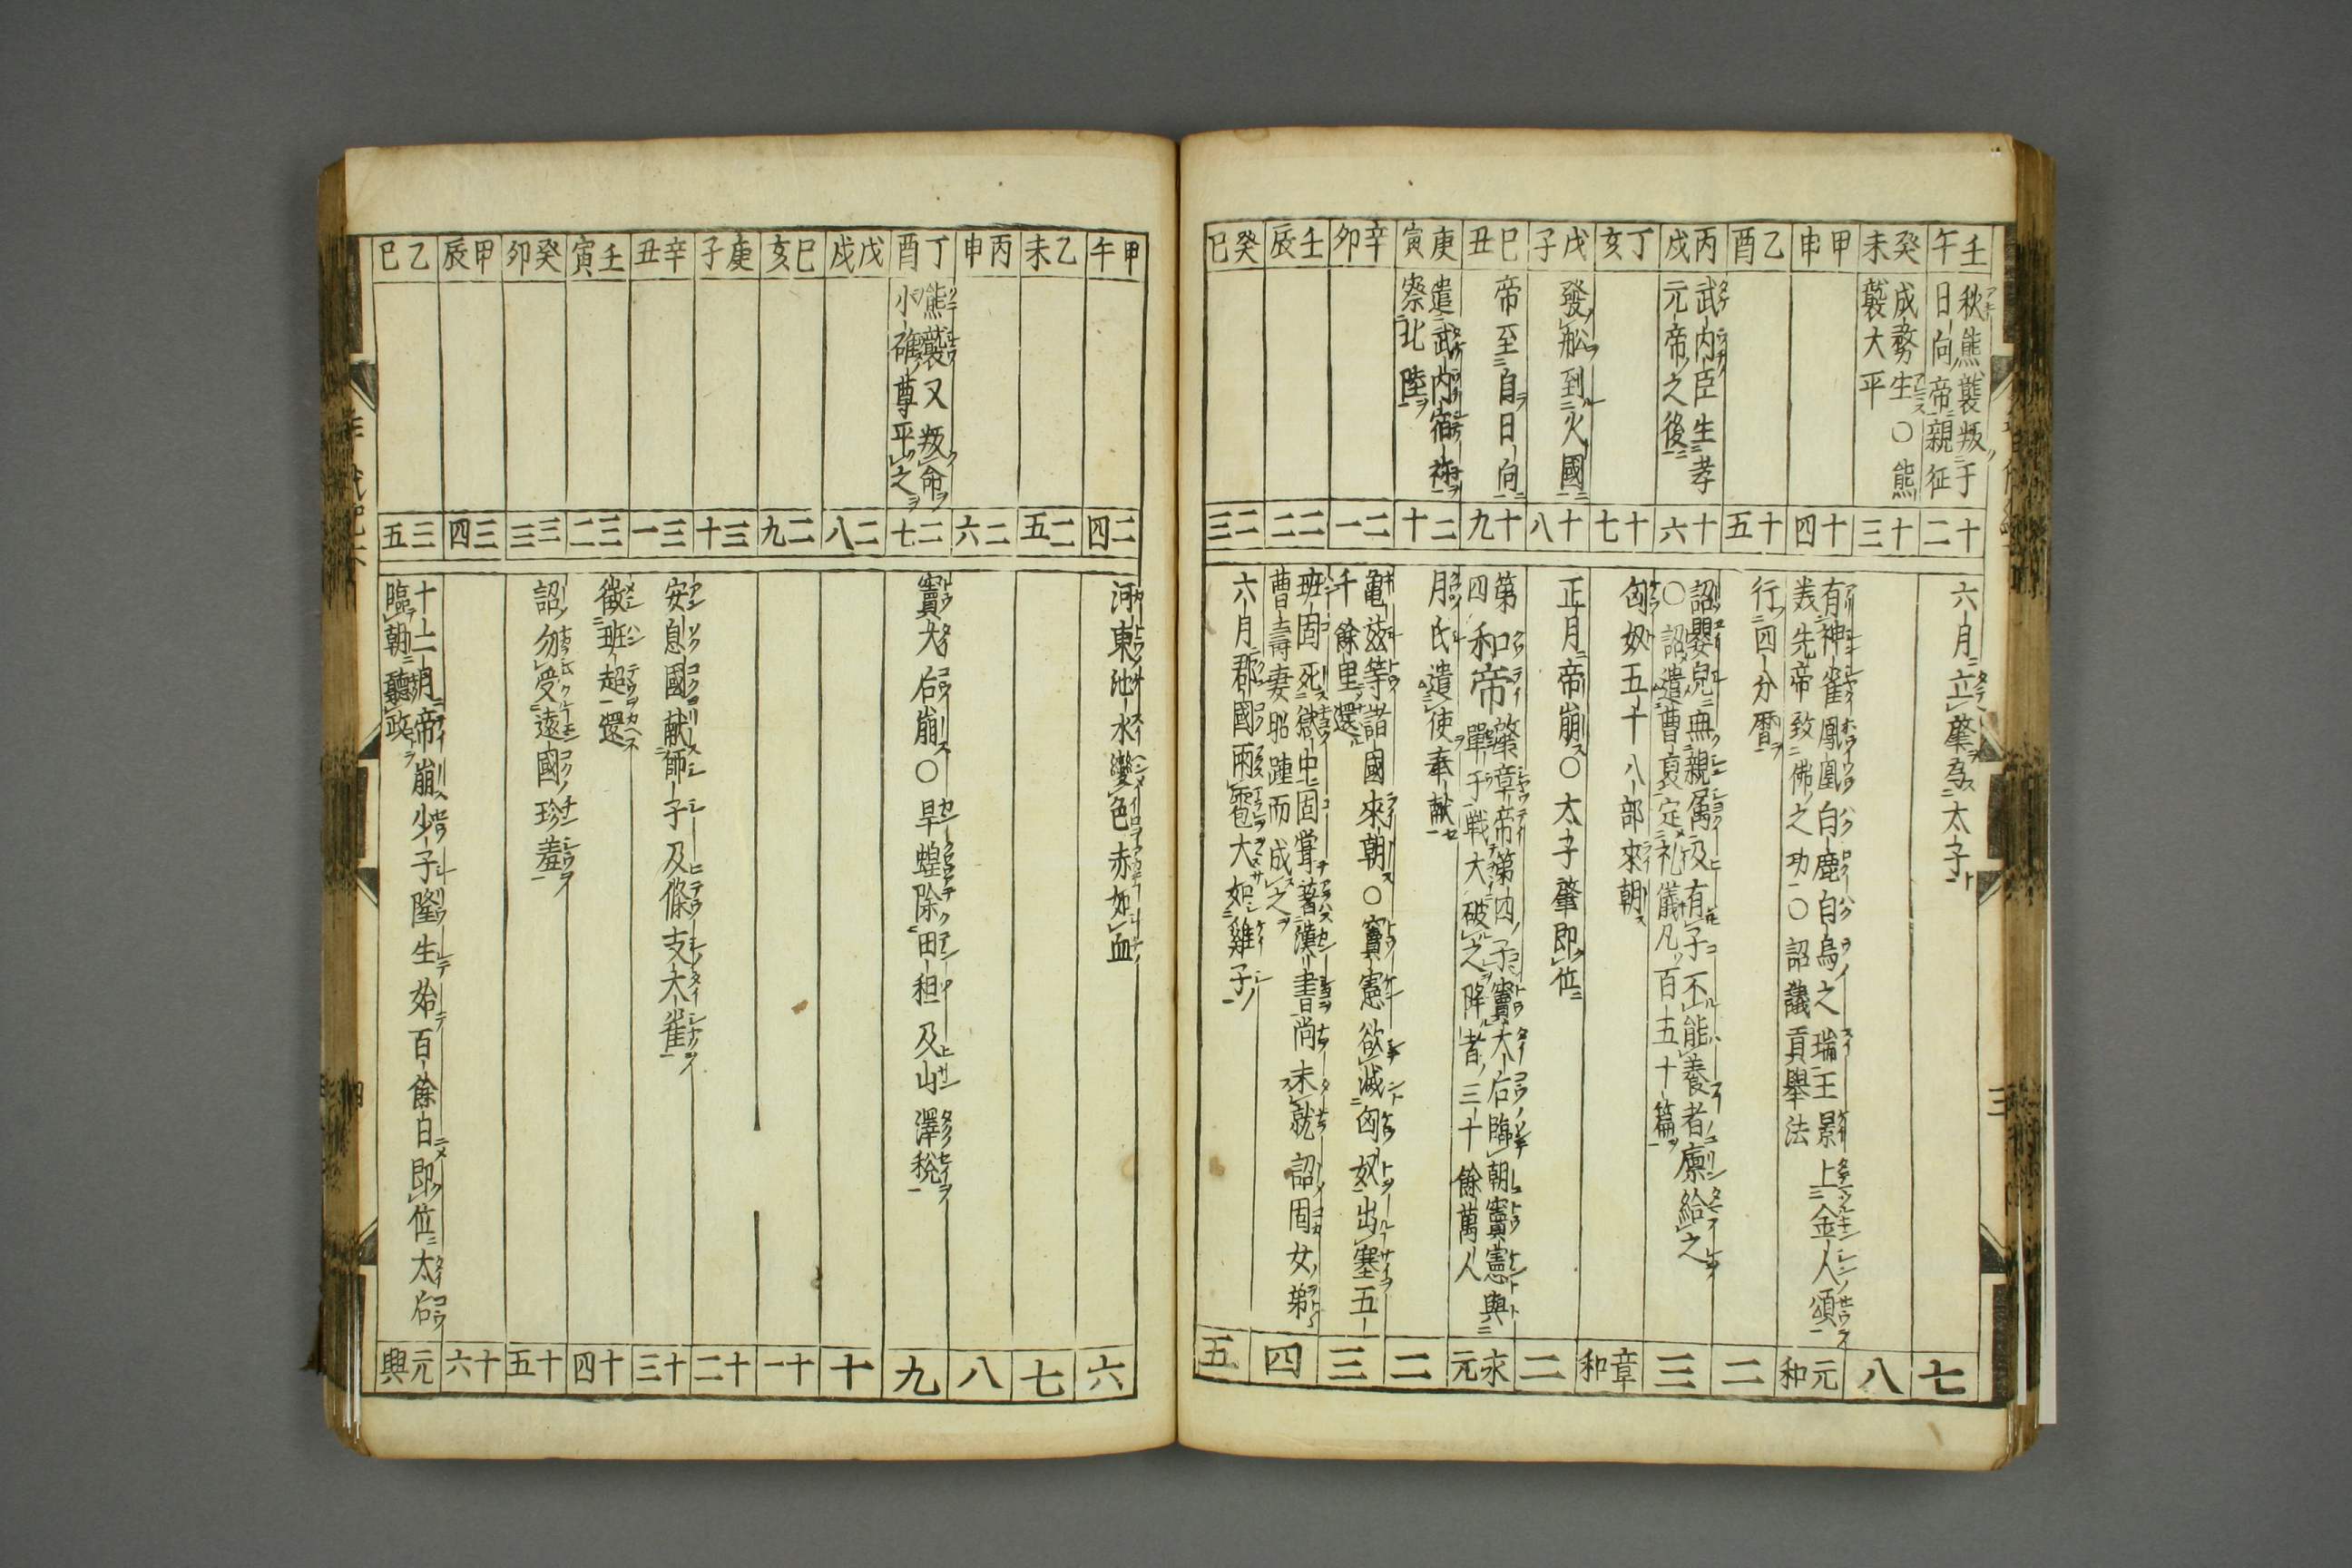 壬午
秋熊襲叛于
日向帝親征
十二
六月立肇為太子
七
癸未
成務生〇熊
襲大平
十三
八
甲申
十四
有神雀鳳凰白鹿白烏之瑞王景上金人頌
美先帝致佛之功〇詔議貢舉法
元和
乙酉
十五
行四分暦
二
丙戌
武内臣生孝
元帝之後
十六
詔嬰兒無親属及有子不能養者廩給之
〇詔遣曹褒定礼儀凡百五十篇
三
丁亥
十七
匈奴五十八部來朝
章和
戊子
發舩到火國
十八
正月帝崩〇太子肇即位
二
巳丑
帝至自日向
十九
第四和帝
肇章帝第四子竇太后臨朝竇憲與
單于戦大破之降者三十餘萬人
永元
庚寅
遣武内宿祢
察北陸
二十
月氏遣使奉献
二
辛卯
二一
亀茲等諸國來朝〇竇憲欲滅匈奴出塞五
千餘里還
三
壬辰
二二
班固死獄中固甞著漢書尚未就詔固女弟
曹壽妻昭踵而成之
四
癸巳
二三
六月郡國雨雹大如雞子
五
甲午
二四
河東池水變色赤如血
六
乙未
二五
七
丙申
二六
八
丁酉
熊襲又叛命
小碓尊平之
二七
竇太后崩〇旱蝗除田租及山澤稅
九
戊戌
二八
十
巳亥
二九
十一
庚子
三十
十二
辛丑
三一
安息國献師子及條支大雀
十三
壬寅
三二
徵班超還
十四
癸卯
三三
詔勿受遠國珍羞
十五
甲辰
三四
十六
乙巳
三五
十二月帝崩少子隆生始百餘日即位太后
臨朝聽政
元興